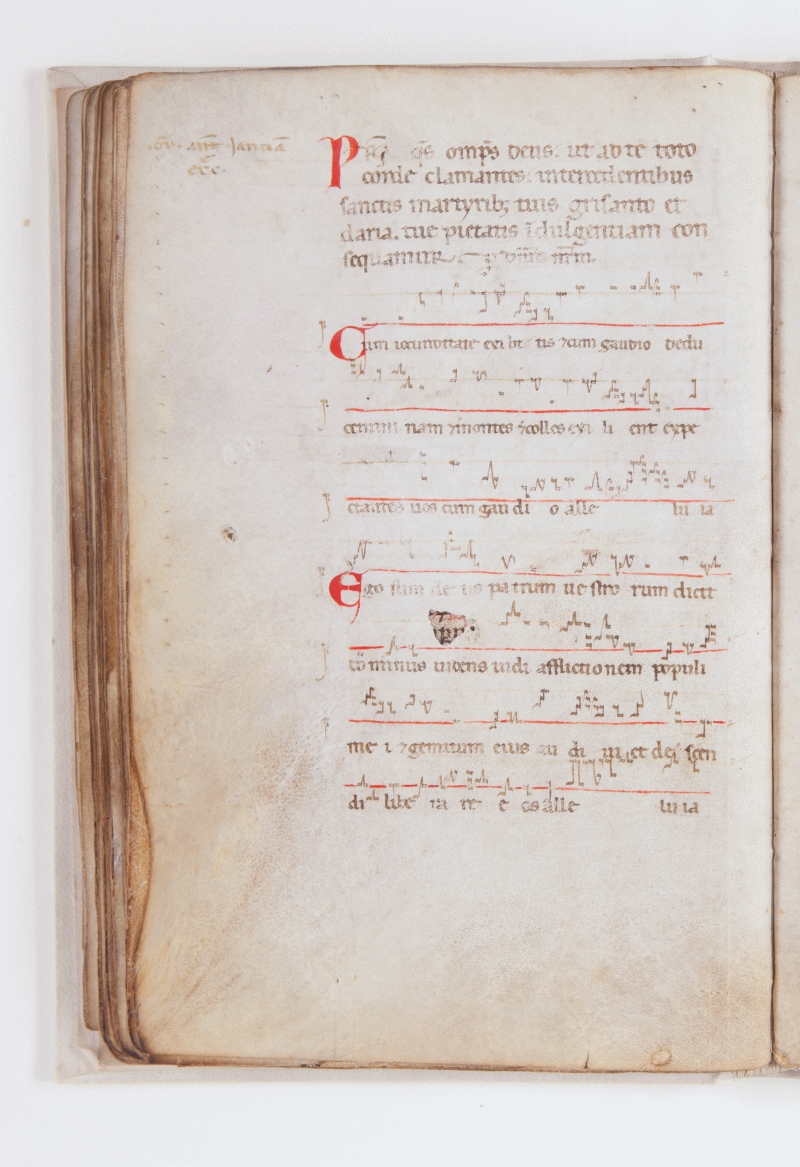 P q̄s omp̄s deus. ut ad te toto
corde clamantes. intercedentibus
sanctis martyrib; tuis grisanto et
daria. tue pietatis ĩdulgentiam con
sequamur
Cum iocunditate exi bi tis ⁊cum gaudio dedu
cemini nam ⁊montes ⁊colles exi li ent expe
ctantes uos cum gau di o alle lu ia
Ego sum de us pa trum ue stro rum dicit
dominus uidens uidi afflictionem populi
me i ⁊gemitum eius au di ui et de scen
di libe ra re e os alle lu ia